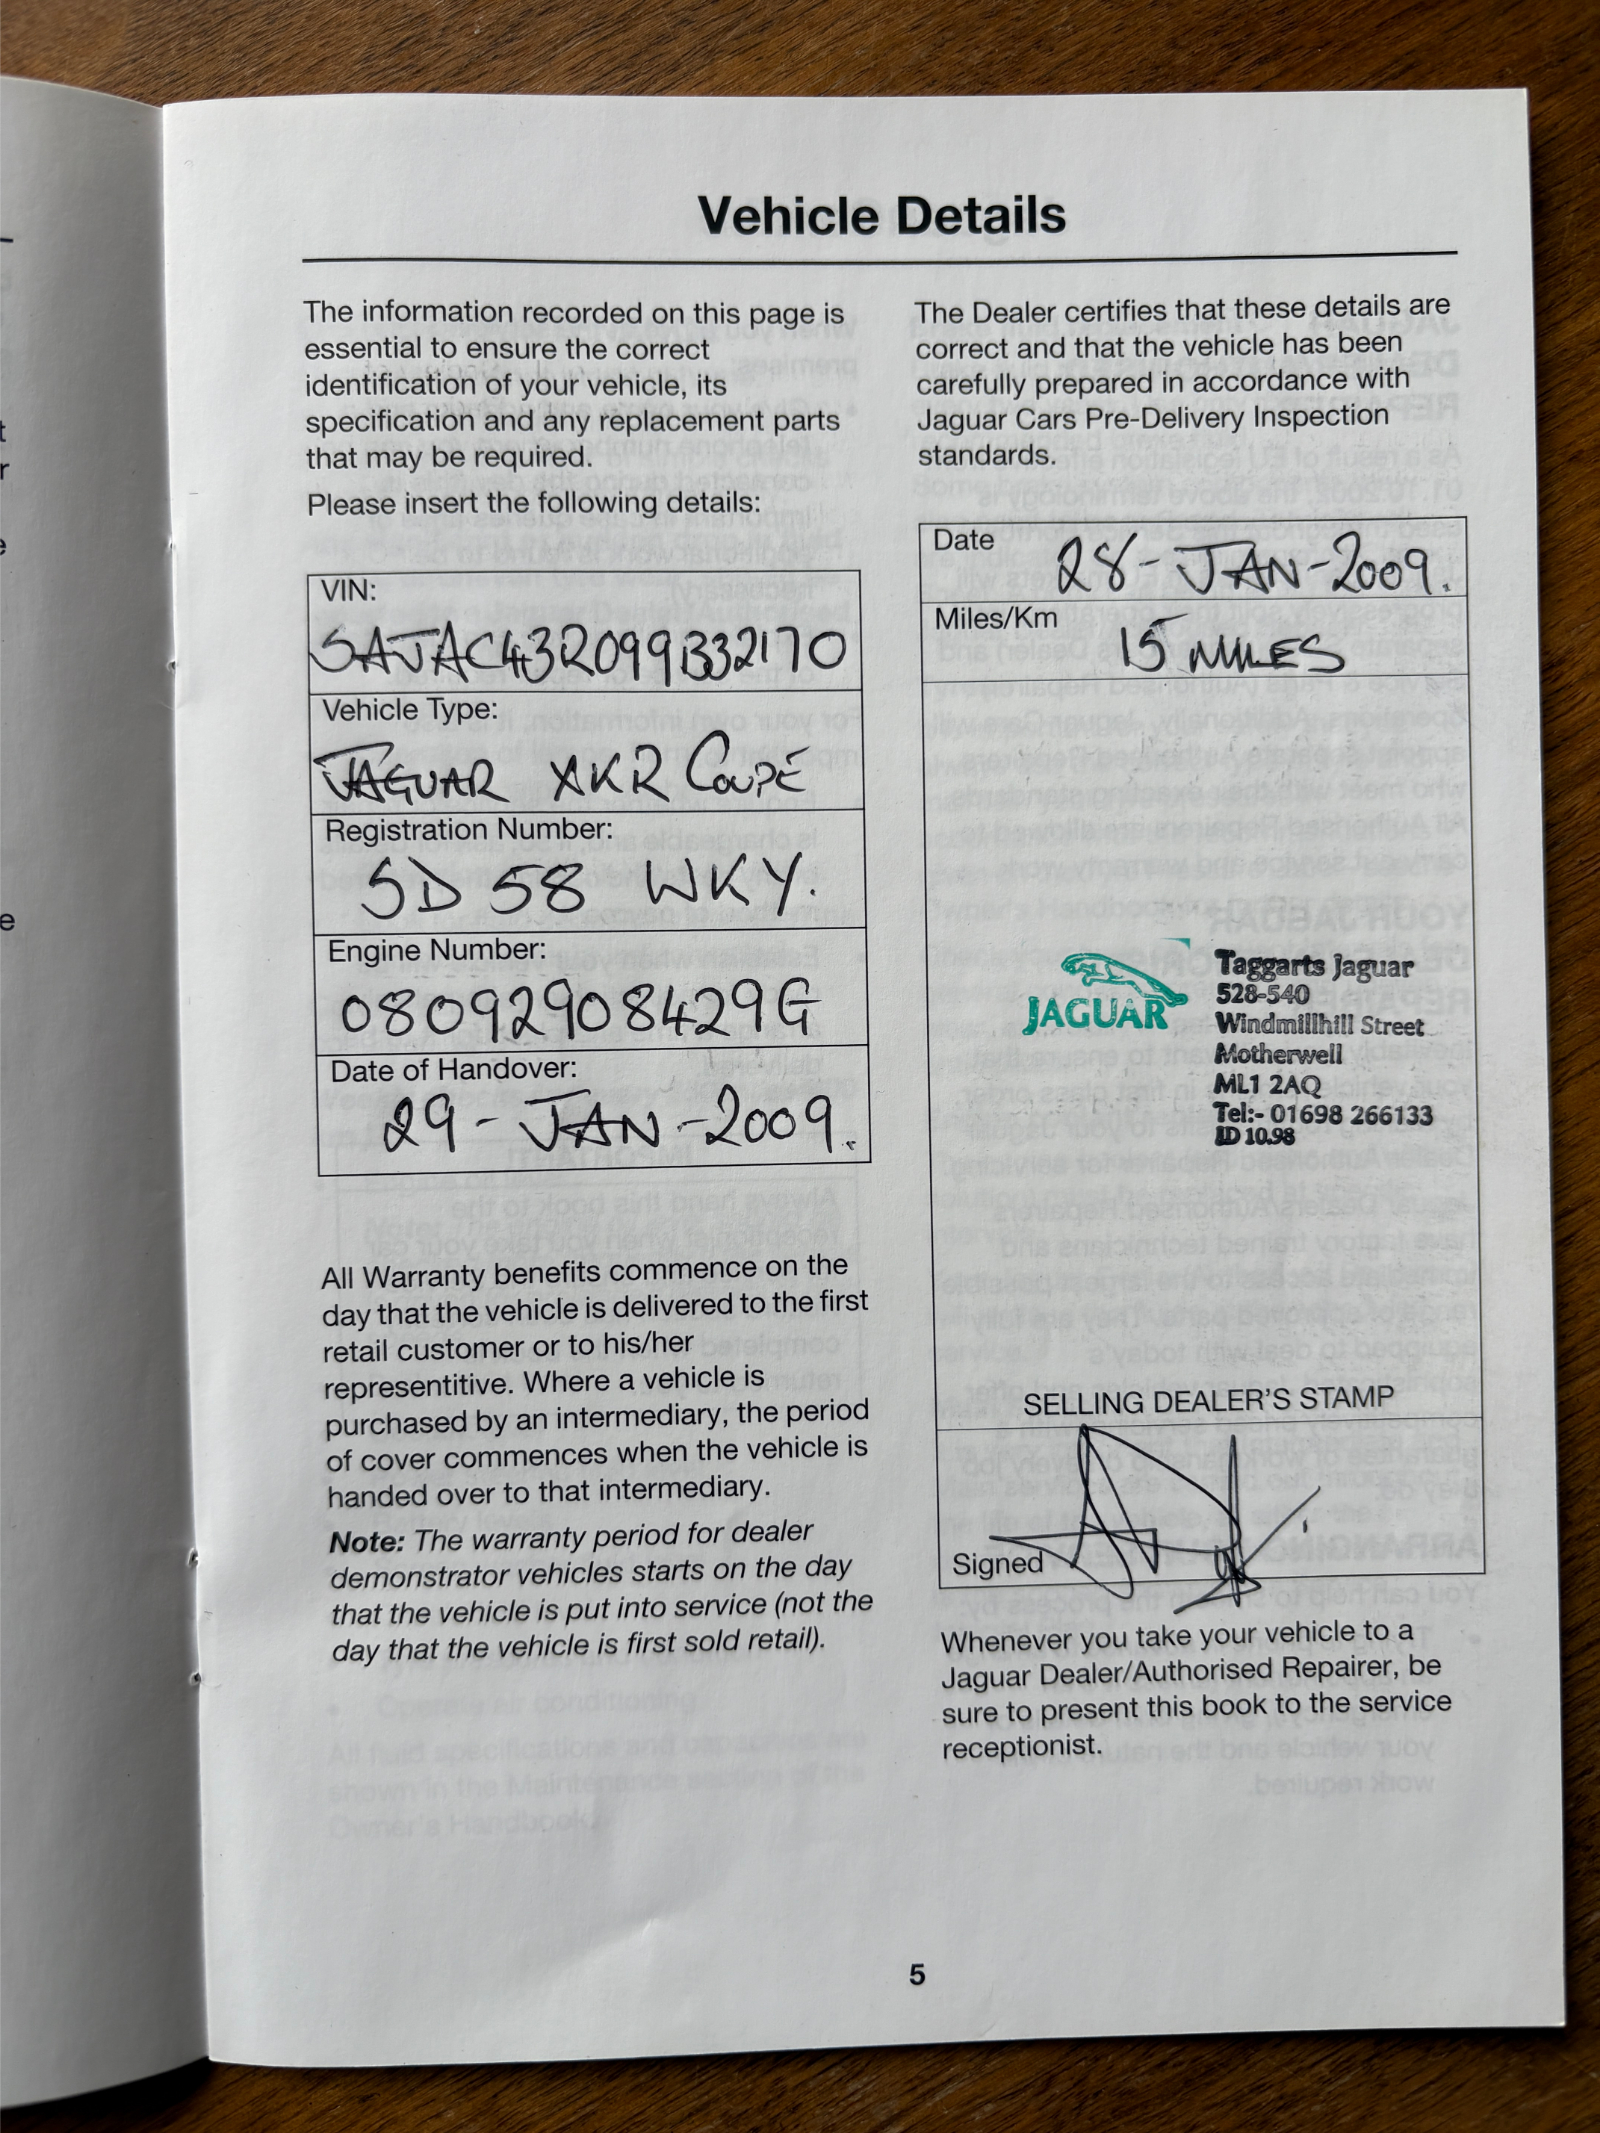 Vehicle Details
The information recorded on this page is
essential to ensure the correct
identification of your vehicle, its
specification and any replacement parts
that may be required.
Please insert the following details:
VIN:
SAJAC43R099B32170
Vehicle Type:
JAGUAR XKR COUPÉ
Registration Number:
SD 58 WKY.
Engine Number:
08092908429G
Date of Handover:
29-JAN-2009.
All Warranty benefits commence on the
day that the vehicle is delivered to the first
retail customer or to his/her
representitive. Where a vehicle is
purchased by an intermediary, the period
of cover commences when the vehicle is
handed over to that intermediary.
Note: The warranty period for dealer
demonstrator vehicles starts on the day
that the vehicle is put into service (not the
day that the vehicle is first sold retail).
The Dealer certifies that these details are
correct and that the vehicle has been
carefully prepared in accordance with
Jaguar Cars Pre-Delivery Inspection
standards.
Date 28-JAN-2009.
Miles/Km 15 MILES
JAGUAR
Taggarts Jaguar
528-540
Windmillhill Street
Motherwell
ML1 2AQ
Tel:- 01698 266133
ID 10.98
SELLING DEALER'S STAMP
Signed
Whenever you take your vehicle to a
Jaguar Dealer/Authorised Repairer, be
sure to present this book to the service
receptionist.
5